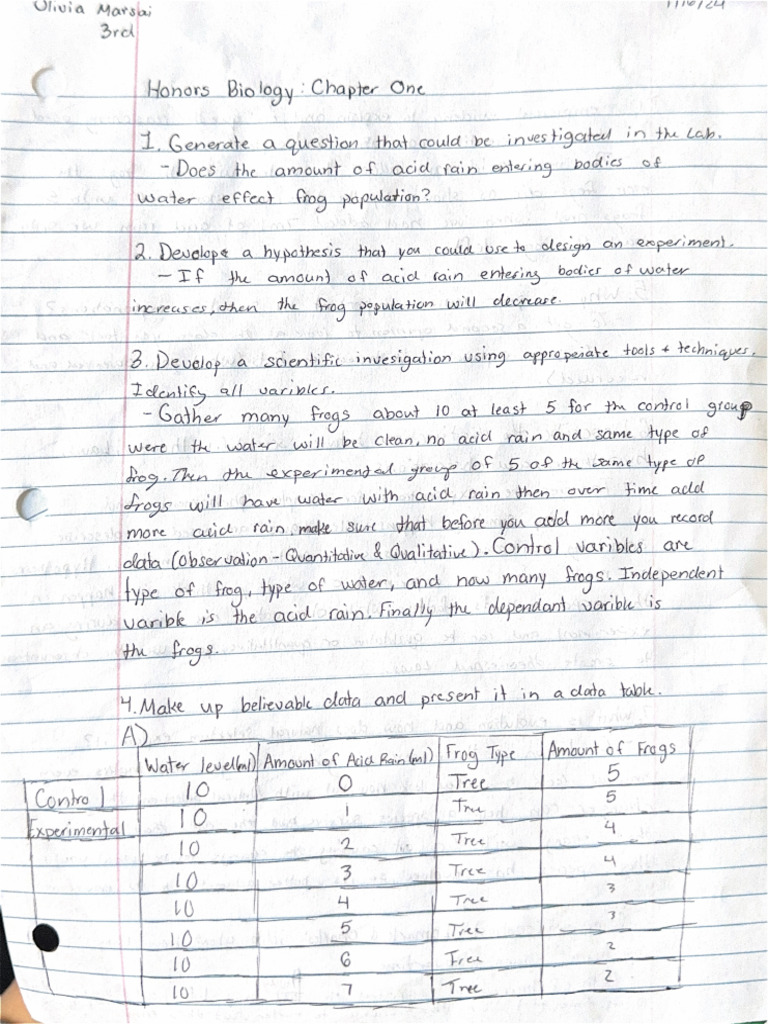 Olivia Marsai
3rd
11/16/24
Honors Biology: Chapter One
1. Generate a question that could be investigated in the Lab.
- Does the amount of acid rain entering bodies of
water effect frog population?
2. Develope a hypothesis that you could use to design an experiment.
- If the amount of acid rain entering bodies of water
increases, then the frog population will decrease.
3. Develop a scientific invesigation using appropeiate tools & techniques.
Identify all varibles.
- Gather many frogs about 10 at least 5 for the control group
were the water will be clean, no acid rain and same type of
frog. Then the experimental group of 5 of the same type of
frogs will have water with acid rain then over time add
more acid rain. make sure that before you add more you record
data (observation - Quantitative & Qualitative). Control varibles are
type of frog, type of water, and how many frogs. Independent
varible is the acid rain. Finally the dependant varible is
the frogs.
4. Make up believable data and present it in a data table.
A)
Water level(ml) Amount of Acid Rain (ml) Frog Type Amount of Frogs
Control 10 0 Tree 5
Experimental 10 1 Tree 5
10 2 Tree 4
10 3 Tree 4
10 4 Tree 3
10 5 Tree 3
10 6 Tree 2
10 7 Tree 2